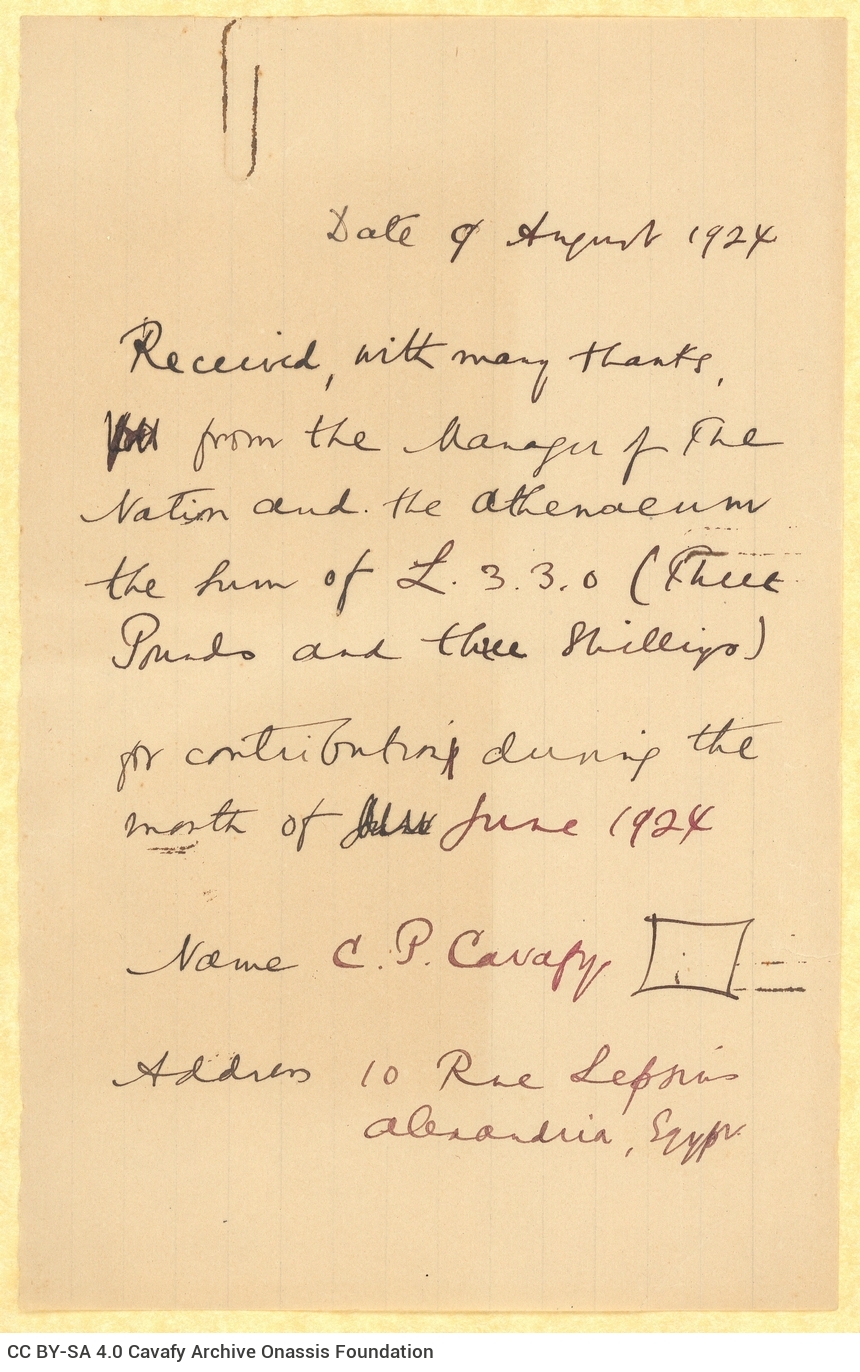 Date 9 August 1924
Received, with many thanks,
from the Manager of The
Nation and the Athenaeum
the sum of L. 3.3.0 (Three
Pounds and three Shillings)
for contribution during the
month of June 1924
Name C. P. Cavafy
Address 10 Rue Lepsius
Alexandria, Egypt
CC BY-SA 4.0 Cavafy Archive Onassis Foundation